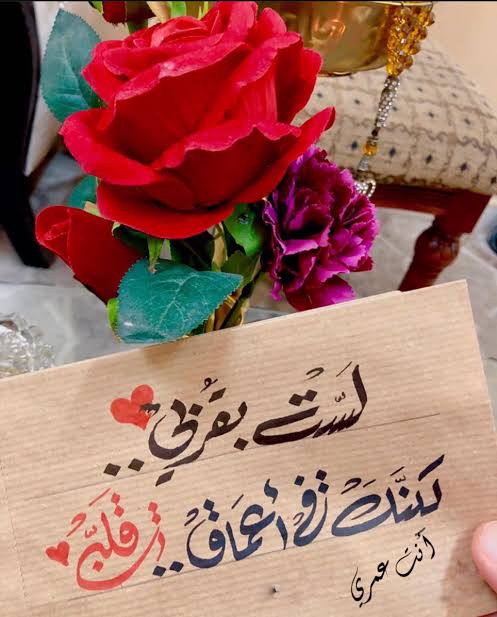 لَسْتَ بقُرْبي..
لَكنَّكَ في أعمَاق.. قلبي
أنت عمري